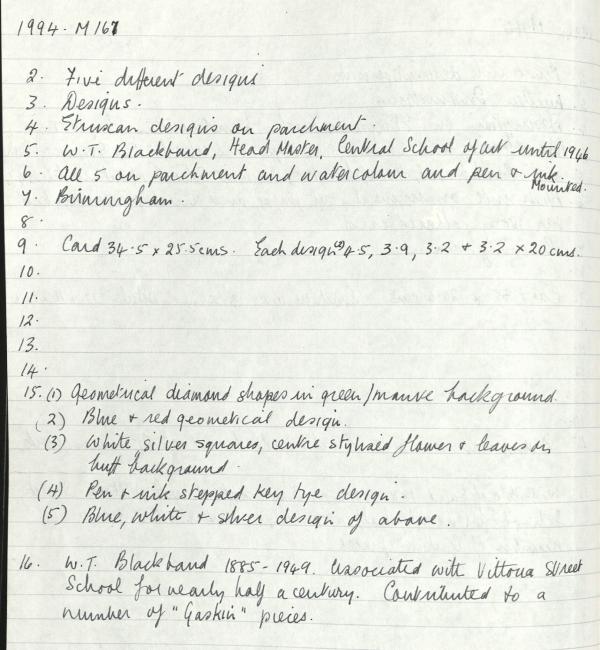 1994. M167
2. Five different designs
3. Designs.
4. Etruscan designs on parchment.
5. W.T. Blackband, Head Master, Central School of Art until 1946
6. All 5 on parchment and watercolour and pen & ink.
Mounted.
7. Birmingham.
8.
9. Card 34.5 x 25.5cms. Each design 4.5, 3.9, 3.2 + 3.2 x 20 cms.
10.
11.
12.
13.
14.
15. (1) Geometrical diamond shapes in green/mauve background.
(2) Blue & red geometical design.
(3) White silver squares, centre stylised flower & leaves on
buff background.
(4) Pen & ink stepped key type design.
(5) Blue, white & silver design of above.
16. W.T. Blackband 1885-1949. Associated with Vittoria Street
School for nearly half a century. Contributed to a
number of "Gaskin" pieces.